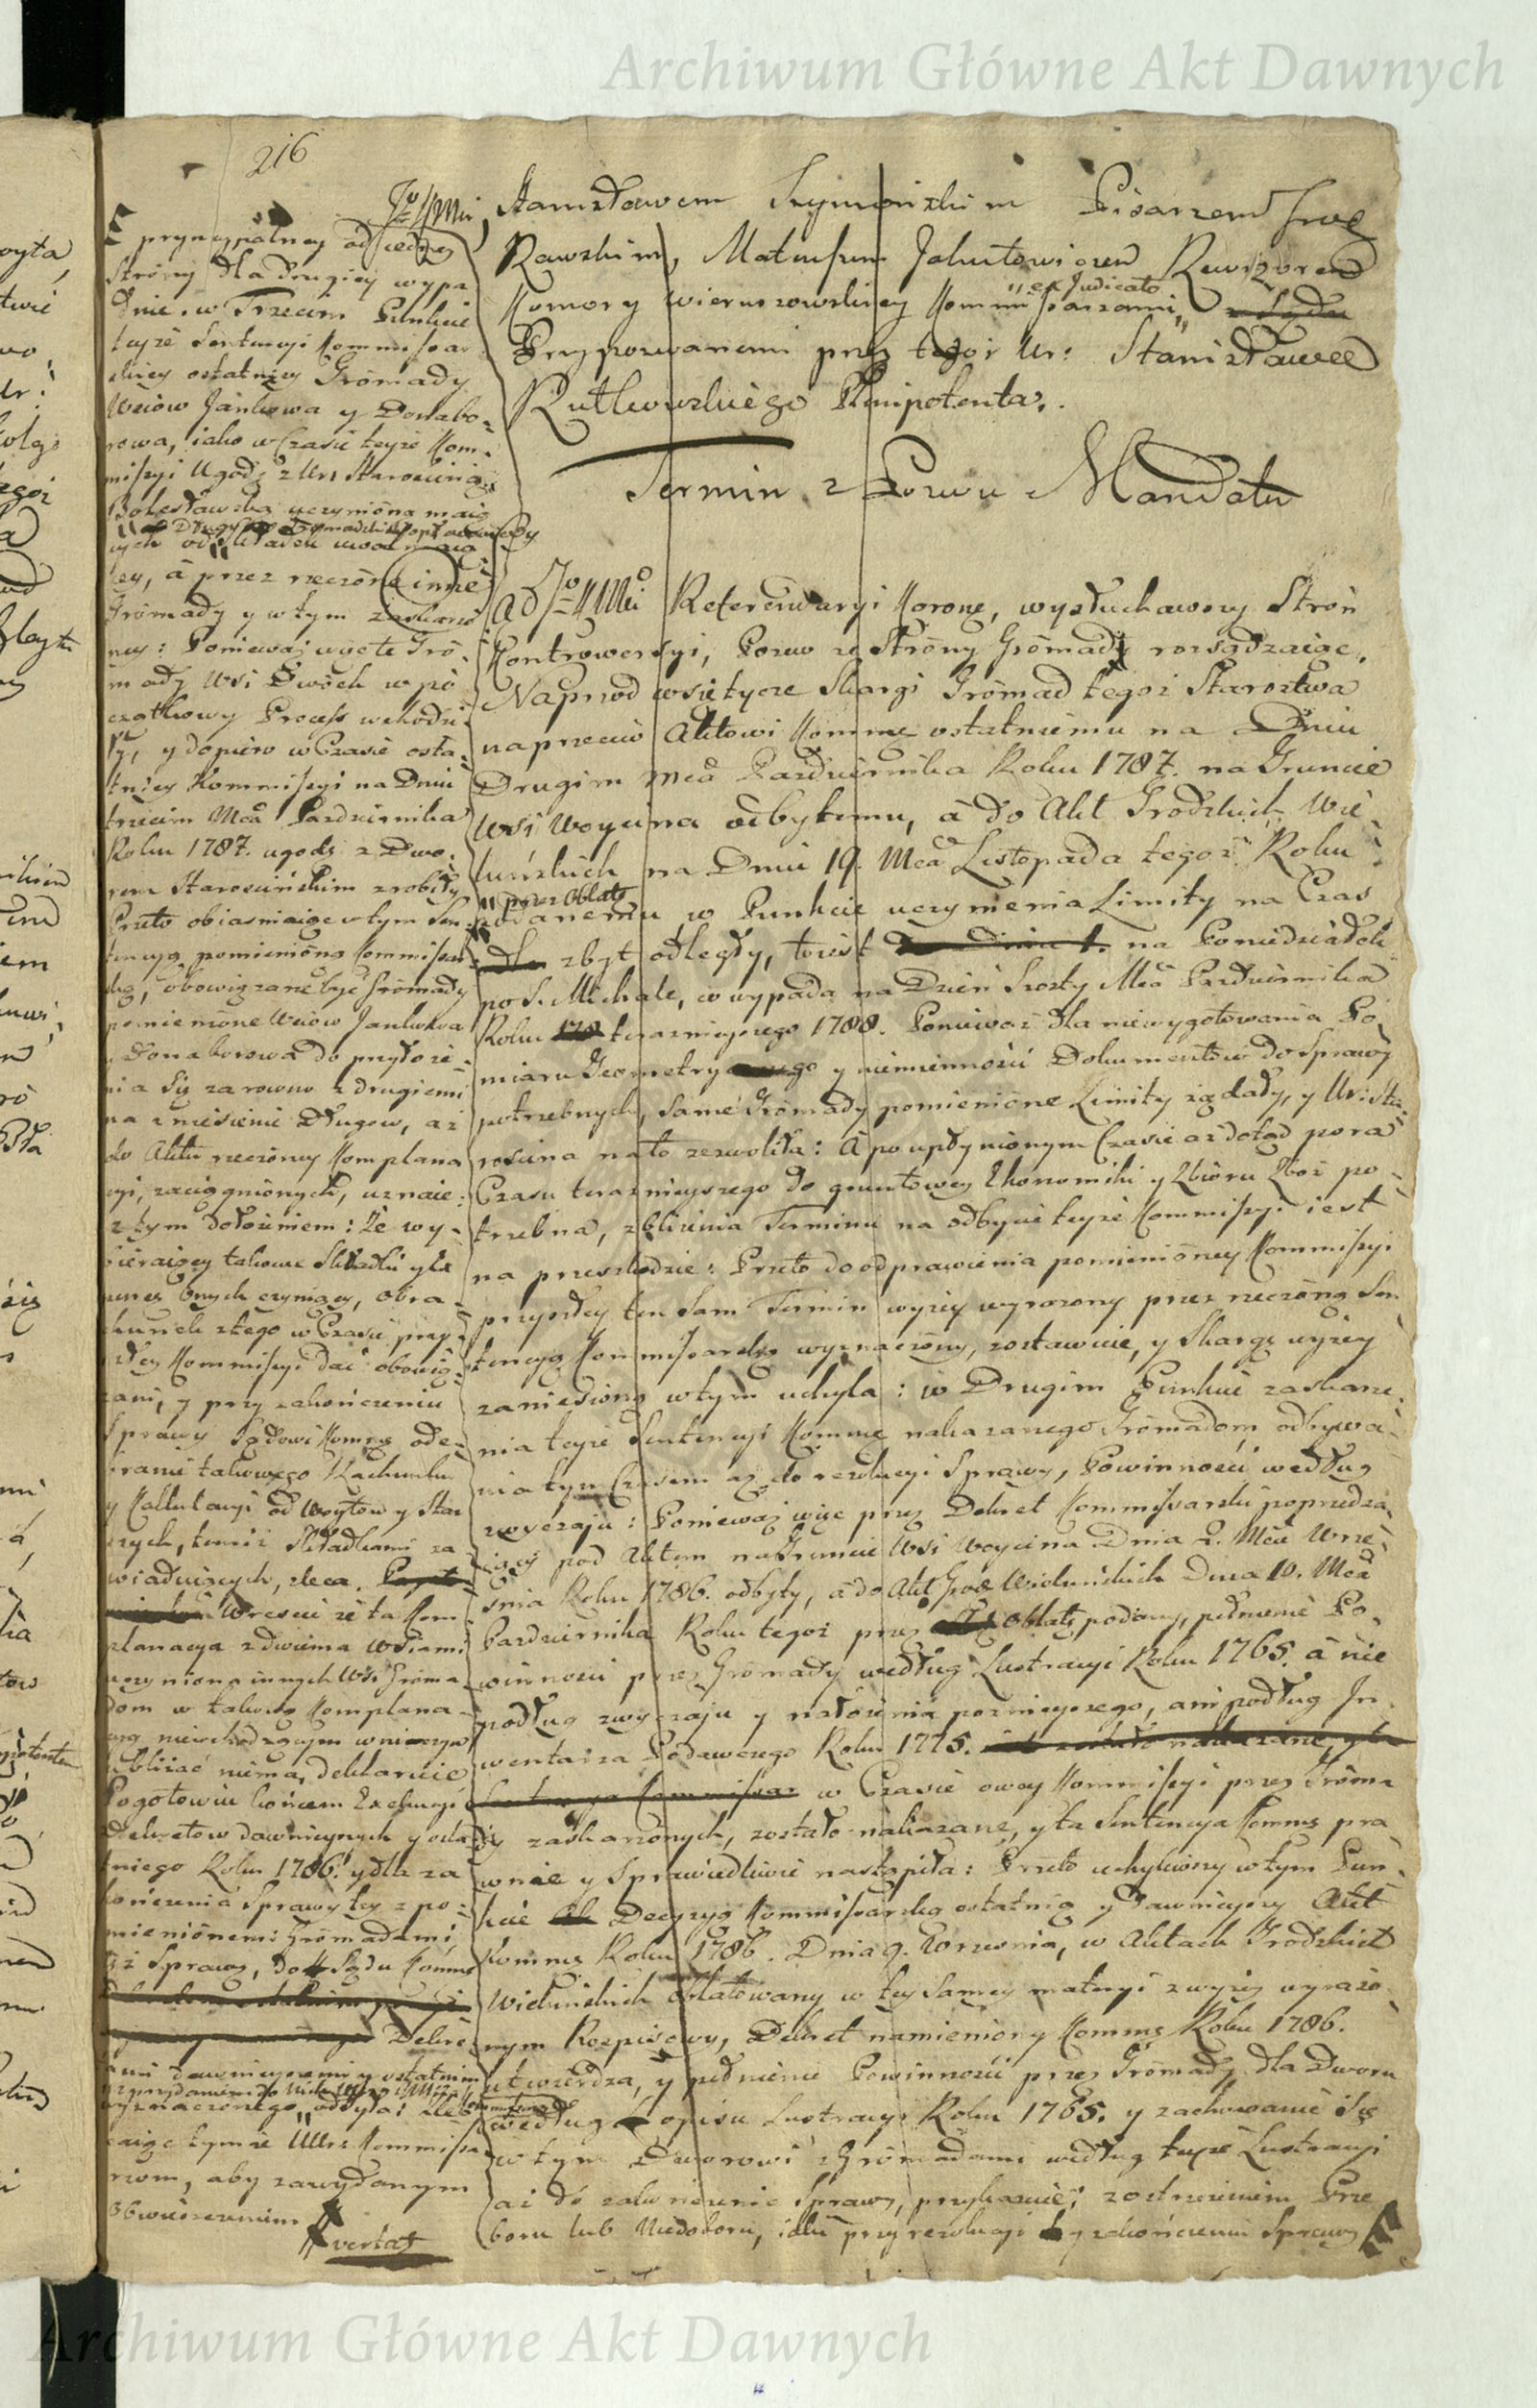 Archiwum Główne Akt Dawnych
216
Stanisławem Szymańskim Pisarzem
Rawskim, Mateuszem Jakutowiczem Rewizorem
Komory Wieruszowskiey Kommissarzami, "ex Judicato
Przypozwanemi przez tegoż Ur: Stanisława
Rutkowskiego Plenipotenta.
Termin z Pozwu Mandatu
Referendaryi Koronę, wysłuchawszy Strón
Kontrowersyi, Pozew ze Strony Gromady rozsądzaiąc,
Naprzod wsiętycze Skargi Gromad tegoż Starostwa
naprzeciw Aktowi Kommę ostatniemu na Dniu
Drugim Mcã Pazdziernika Roku 1787. na Gruncie
Wsi Woycina odbytemu, à do Akt Grodzkich Wie-
luńskich na Dniu 19. Mcã Listopada tegoż Roku
"przez Oblatę
podanemu w Punkcie uczynienia Limity na Czas
zbyt odległy, to iest na Poniedziałek
po S. Michale, co wypada na Dzień Szosty Mcã Pazdziernika
Roku teraznieyszego 1788. Ponieważ dla niewygotowania Po-
miaru Geometry y niemienności Dokumentów do Sprawy
potrzebnych, same Gromady pomienióne Limity żądały, y Ur: Sta-
rosćina na to zezwoliła: à po upłynionym Czasie aż dotąd pora
Czasu teraznieyszego do gruntowey Ekonomiki y Zbioru Zboż po-
trzebna, zbliżenia Terminu na odbycie teyże Kommissyi iest
na przeszkodzie: Przeto do odprawienia pomienióney Kommissyi
przyszłey ten sam Termin wyżey wyrażony przez rzeczóną Sen-
tencyą Kommissarską wyznaczony, zostawuie, y Skargę wyżey
zaniesioną w tym uchyla: w Drugim Punkcie zaskarże-
nia teyże Sentencyi Kommę nakazanego Gromadom odbywa-
nia tym Czasem aż do rezolucyi Sprawy, Powinności według
zwyczaju: Ponieważ więc przez Dekret Kommissarski poprzedza-
iący pod Aktem na Gruncie Wsi Woycina Dnia 2. Mcã Wrze-
śnia Roku 1786. odbyty, à do Akt Grod Wieluńskich Dnia 10. Mcã
Pazdziernika Roku tegoż przez Oblatę podany, pełnienie Po-
winności przez Gromady według Lustracyi Roku 1765. à nie
podług zwyczaju y nałożenia poznieyszego, ani podług In-
wentarza Podawczego Roku 1775.
w Czasie owey Kommissyi przez Groma-
dy zaskarżonych, zostało nakazane, y ta Sentencya Kommę pra-
wnie y Sprawiedliwie nastąpiła: Przeto uchyliwszy w tym Pun-
kcie Decyzyą Kommissarską ostatnią y Dawnieyszy Akt
Kommę Roku 1786. Dnia 9. Września, w Aktach Grodzkich
Wieluńskich Oblatowany w tey samey materyi zwyż wyrażo-
nym Rozpisowy, Dekret namieniony Kommę Roku 1786.
utwierdza, y pełnienie Powinności przez Gromady dla Dworu
według opisu Lustracyi Roku 1765. y zachowanie się
w tym Dworowi z Gromadami według teyże Lustracyi
aż do zakończenia Sprawy, przykazuie; zostrzeżeniem Prze-
boru lub Niedoboru, iaki przy rezolucyi y zakończeniu Sprawy
pryncypalney od iedney
Strony dla drugiey wypa
dnie. w Trzecim Punkcie
teyże Sentencyi Kommissar-
skiey ostatniey Gromady
Wsiow Jankowa y Donabo-
rowa, iako w Czasie teyże Kom-
missyi Ugodę z Ur: Starosciną
Bolesławską uczynioną maią
cych od Składek
ley, à przez rzeczóne inne
Gromady y w tym zaskarżo
ney: Ponieważ więc te Gro-
mady Wsi Dwóch w po-
czątkowy Process wchodzi-
ły, y dopiero w Czasie osta-
tniey Kommissyi na Dniu
trzecim Mcã Pazdziernika
Roku 1787. ugodę z Dwo-
rem Starościńskim zrobiły
Przeto obiasniaiąc w tym Sen-
tencyą pomienióną Kommissar-
ską, obowiązane być Gromady
pomienióne Wsiow Jankowa
y Donaborowa do przyłoże-
nia się zarowno z drugiemi
na zniesienie Długow, aż
do Aktu rzeczóney Komplana-
cyi, zaciągnionych, uznaie
z tym dołożeniem: Że wy-
bieraiący takowe Składki y
onych czyniący, obra-
chunek z tego w Czasie przy-
szłey Kommissyi dać obowią-
zani, y przy zakończeniu
Sprawy Sądowi Kommę ode-
branie takowego Rachunku
y Kalkulacyi od Woytow y Star-
szych, temiż Składkami za-
wiaduiących, zleca.
Wreszcie że ta Kom-
planacya z dwiema Wsiami
uczynioną innych Wsi Groma-
dom w takową Komplana-
cyą niewchodzącym w niczym
ubliżać niema, deklaruie
Pogotowiu końcem Exekucyi
Dekretow dawnieyszych y osta-
tniego Roku 1786. y dla za-
kończenia Sprawy tey z po-
mieniónemi Gromadami
też Sprawę, do Sądu Kommę
Dekre-
tami dawnieyszemi y ostatnim
wyznaczonego odsyła: zle-
caiąc tymże UUr: Kommissa-
rzom, aby zawydanym
Obwieszczeniem
vertat
Archiwum Główne Akt Dawnych